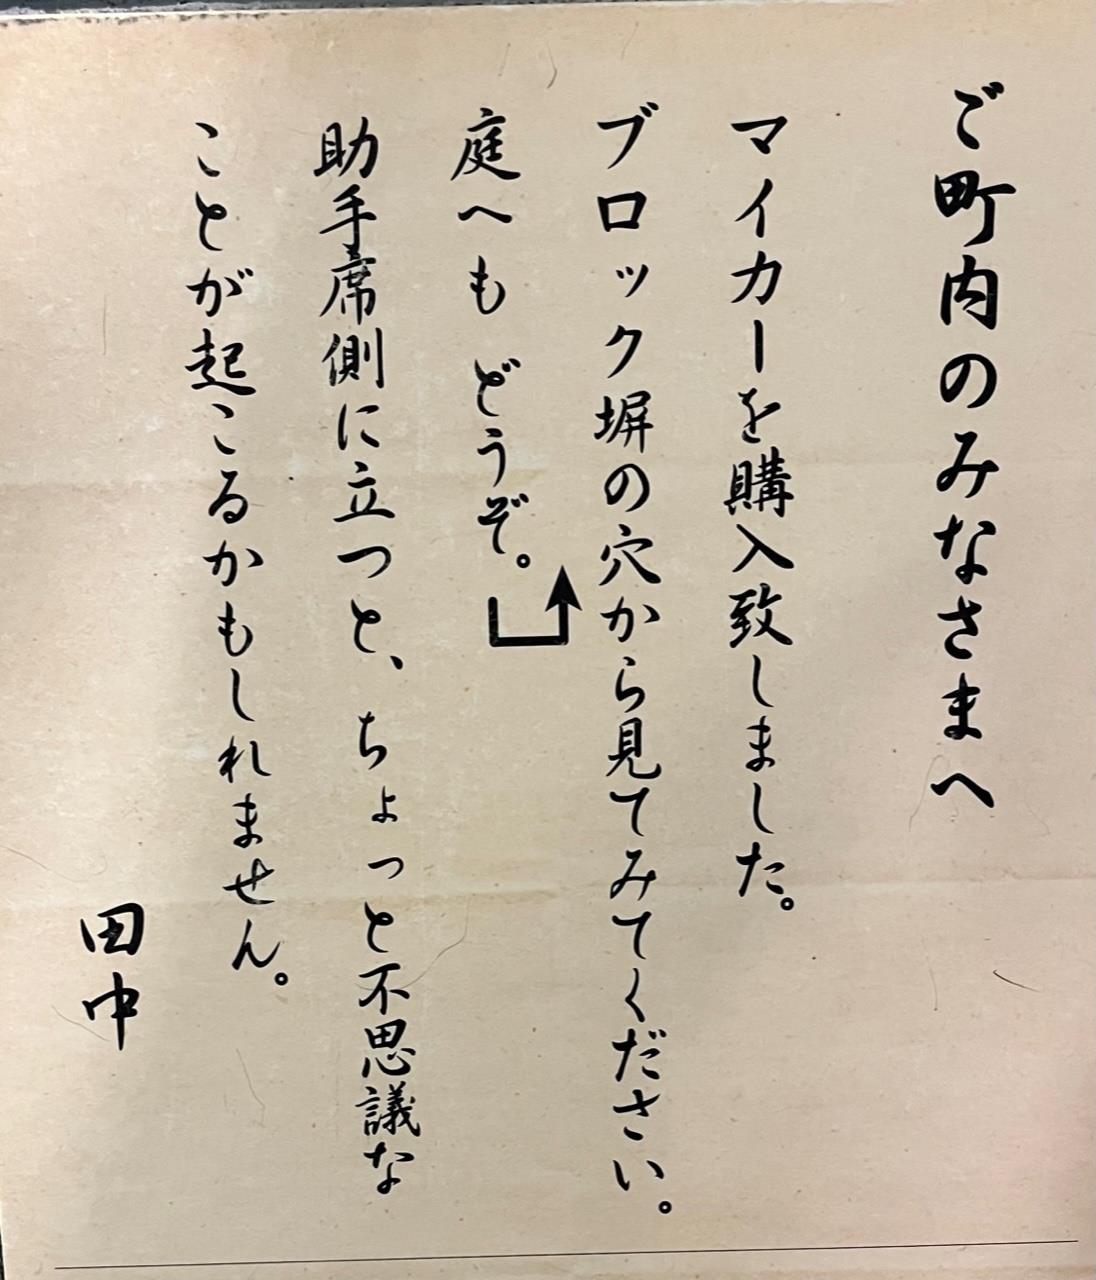 ご町内のみなさまへ
マイカーを購入致しました。
ブロック塀の穴から見てみてください。
庭へも どうぞ。
助手席側に立つと、ちょっと不思議な
ことが起こるかもしれません。
田中